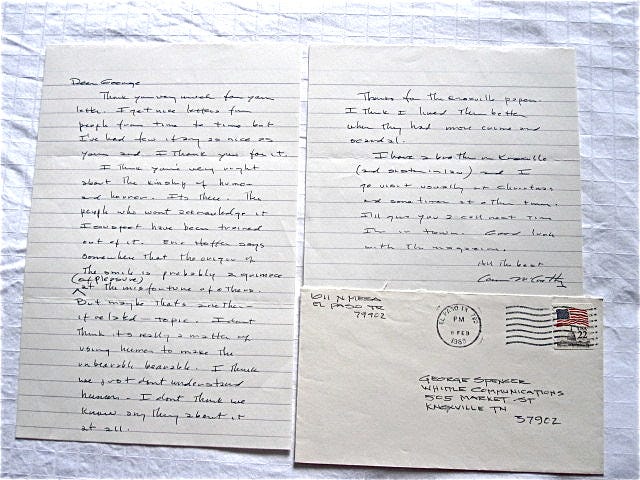 Dear George
Thank you very much for your
letter. I get nice letters from
people from time to time but
I've had few if any as nice as
yours and I thank you for it.
I think you're very right
about the kinship of humor
and horror. Its there. The
people who wont acknowledge it
I suspect have been trained
out of it. Eric Hoffer says
somewhere that the origin of
the smile is probably a grimace
(of pleasure)
at the misfortune of others.
But maybe thats another—
if related—topic. I dont
think its really a matter of
using humor to make the
unbearable bearable. I think
we just dont understand
humor. I dont think we
know anything about it
at all.
Thanks for the Knoxville papers.
I think I liked them better
when they had more crime and
scandal.
I have a brother in Knoxville
(and sister in law) and I
go visit usually at Christmas
and sometimes at other times.
I'll give you a call next time
I'm in town. Good luck
with the magazine.
All the best
Cormac McCarthy
611 N MESA
EL PASO TX
79902
EL PASO TX
PM
6 FEB
USA
22
GEORGE SPENCER
WHITTLE COMMUNICATIONS
505 MARKET ST
KNOXVILLE TN
37902